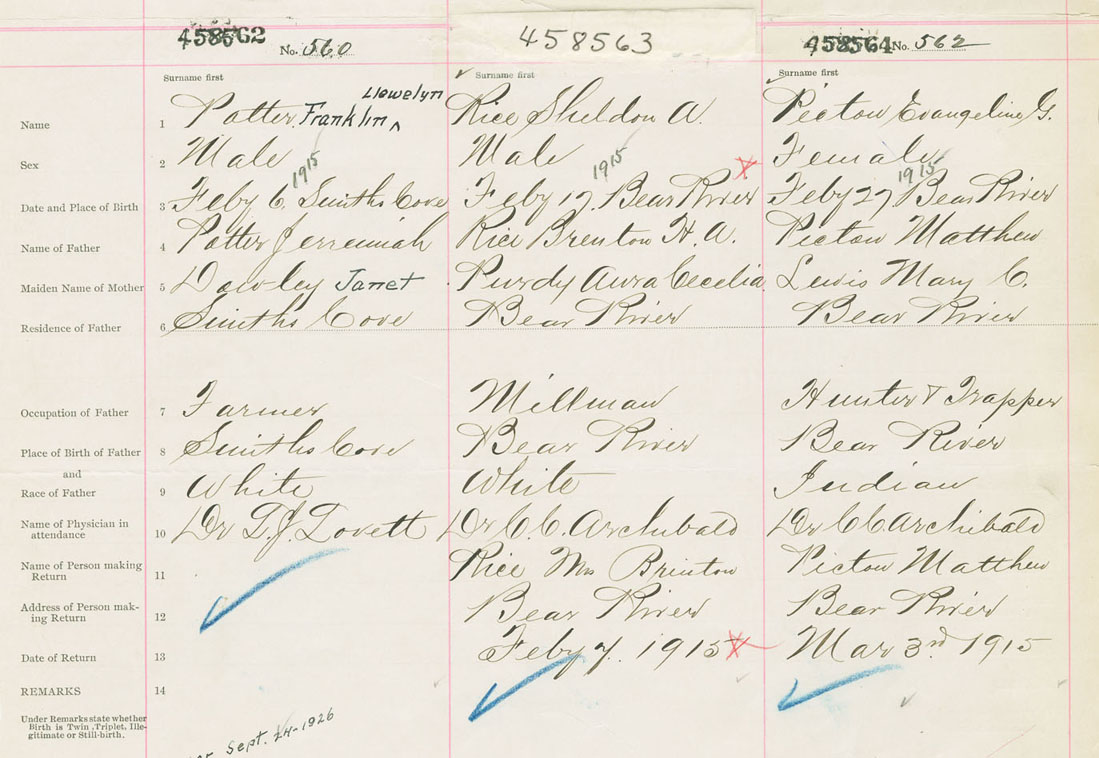 458562 No. 560 458563 458564 No. 562
Surname first Surname first Surname first
Llewelyn
Name 1 Potter Franklin ^ Rice Sheldon A. Picton Evangeline G.
Sex 2 Male Male Female
1915 1915 1915
Date and Place of Birth 3 Feby 6, Smiths Cove Feby 17. Bear River Feby 27 Bear River
Name of Father 4 Potter Jeremiah Rice Brenton H. A. Picton Matthew
Maiden Name of Mother 5 Dowley Janet Purdy Aura Cecelia Lewis Mary C.
Residence of Father 6 Smiths Cove Bear River Bear River
Occupation of Father 7 Farmer Millman Hunter & Trapper
Place of Birth of Father 8 Smiths Cove Bear River Bear River
and
Race of Father 9 White White Indian
Name of Physician in
attendance 10 Dr L. J. Lovett Dr C. C. Archibald Dr C C Archibald
Name of Person making
Return 11 Rice Mrs Brinton Picton Matthew
Address of Person mak-
ing Return 12 Bear River Bear River
Date of Return 13 Feby 7. 1915 Mar 3rd 1915
REMARKS 14
Under Remarks state whether
Birth is Twin, Triplet, Ille-
gitimate or Still-birth.
Sept. 24-1926